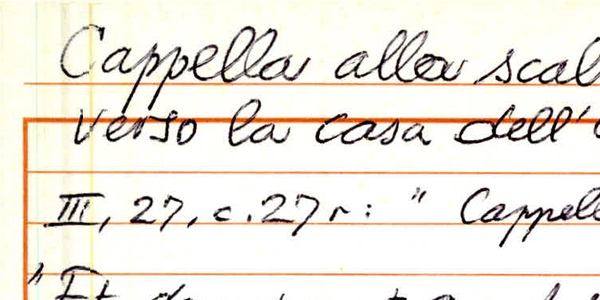 Cappella alla scal
verso la casa dell'
III, 27, c. 27 r: " Cappell
"Et